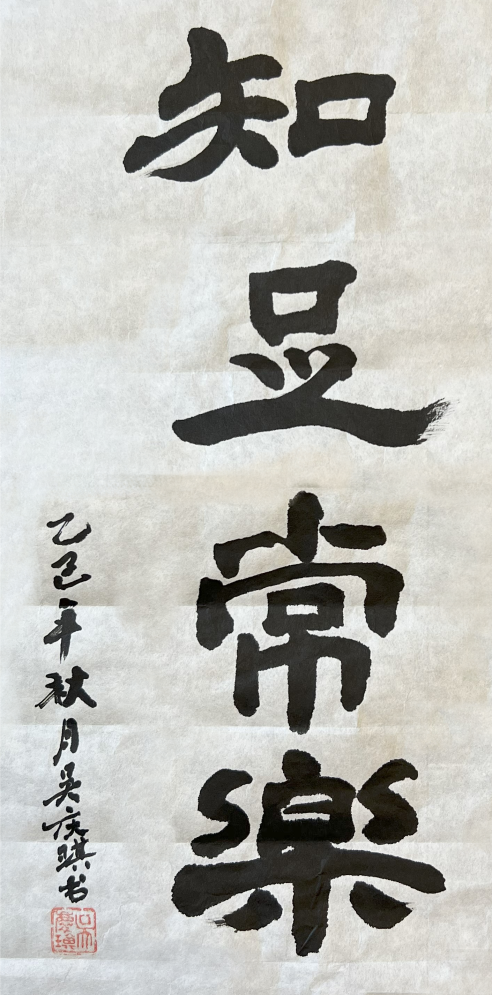 知足常樂
乙巳年秋月吴庆琪书